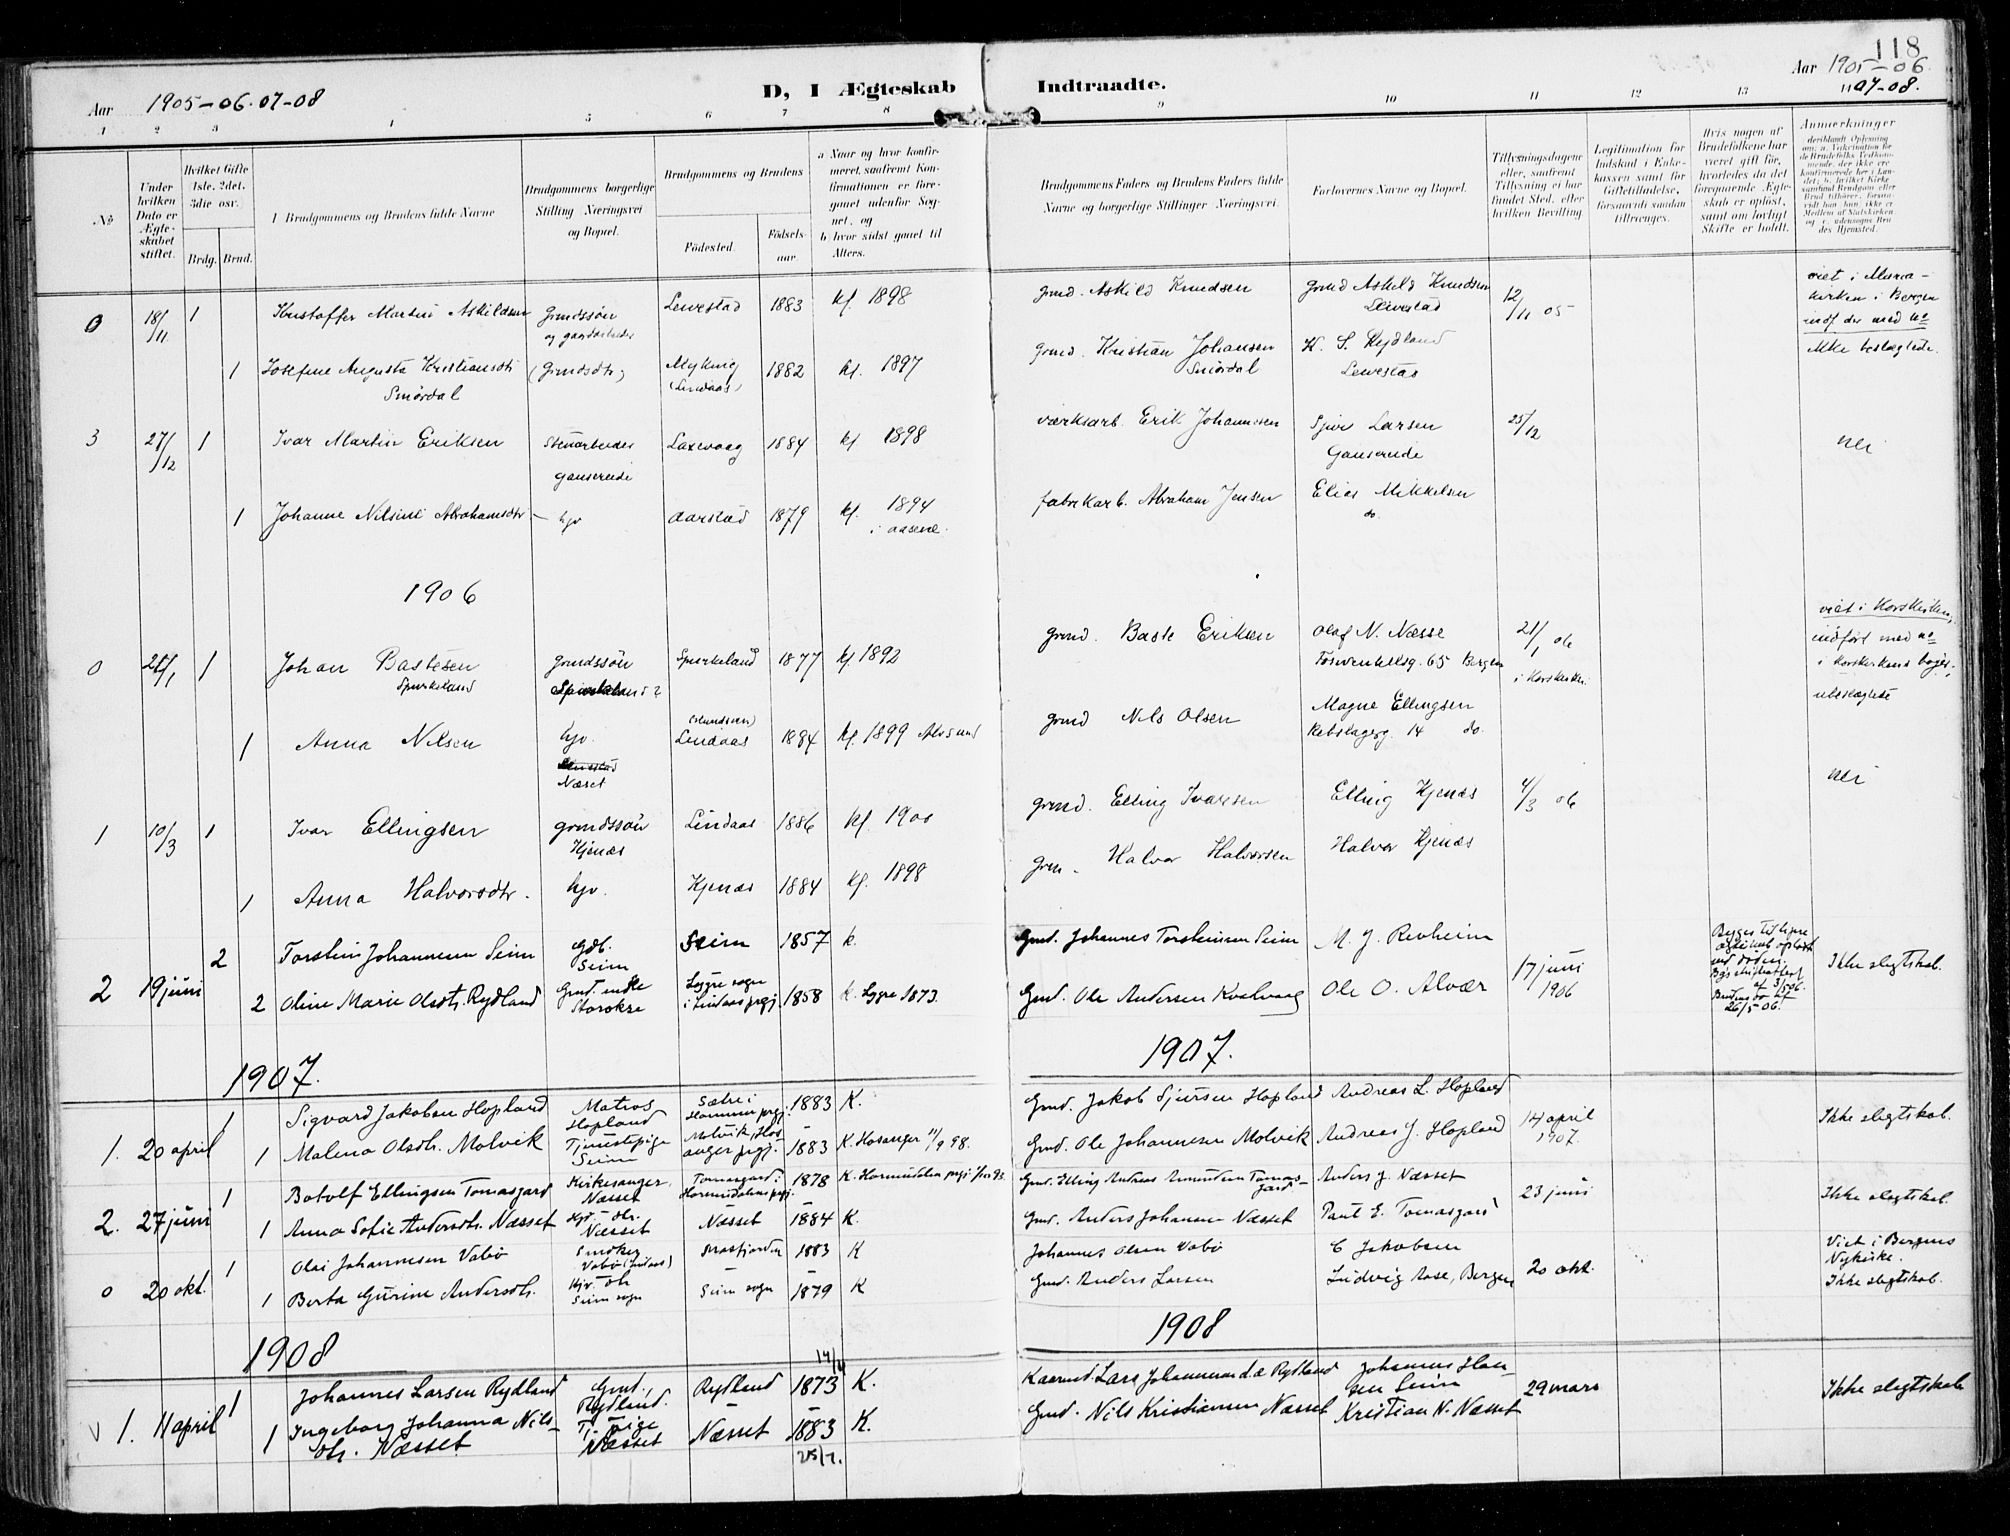 118
Aar 1905-06.07-08
D, I Ægteskab Indtraadte.
Aar 1905-06.
07-08.
1 2 3 4 5 6 7 8 9 10 11 12 13
No
Under hvilken Dato er Ægteskabet stiftet.
Hvilket Gifte 1ste. 2det. 3die osv.
Brdg. Brud.
Brudgommens og Brudens fulde Navne
Brudgommens borgerlige Stilling Næringsvei og Bopæl.
Brudgommens og Brudens
Fødested.
Fødselsaar.
a Naar og hvor konfirmeret, saafremt Konfirmationen er foregaaet udenfor Sognet, og
b hvor sidst gaaet til Alters.
Brudgommens Faders og Brudens Faders fulde Navne og borgerlige Stillinger Næringsvei.
Forlovernes Navne og Bopæl.
Tillysningsdagene eller, saafremt Tillysning ei har fundet Sted, efter hvilken Bevilling
Legitimation for Indskud i Enkekassen samt for Giftetilladelse, forsaavidt saadan tiltrænges.
Hvis nogen af Brudefolkene har været gift før, hvorledes da det foregaaende Ægteskab er opløst, samt om lovligt Skifte er holdt.
Anmerkninger
0 18/11 1 Kristoffer Martin Askildsen Grmdssøn og gaardarbeider 1883 kf. 1898 grmd. Askild Knudsen grmd Askild Knudsen 12/11 05 viet i Mariakirken i Bergen indf der med no
1 Josefine Augusta Kristiansdt Smørdal (Grmdsdtr) Myking (Lindaas) 1882 kf. 1897 grmd. Kristian Johansen Smørdal K. S. Rydland ikke beslægtede.
3 27/12 1 Ivar Martin Eriksen Stenarbeider Laxevaag 1884 kf 1898 værksarb. Erik Johannesen Sjur Larsen 25/12 nei
1 Johanne Nilsine Abrahamsdtr hjv Aarstad 1879 kf. 1894 i aasene. fabrikarb. Abraham Jensen Elias Mikkelsen do.
1906
0 1 Johan Bastesen Spurkeland grmdssøn Spurkeland 1877 kf 1892 grmd. Baste Eriksen Olaf N. Næsse 65 Bergen 21/1 06 i Korskirken viet i Korskirken, indført med no i Korskirkens bøger. ubeslægtede
1 Anna Nilsen hjv. Næset Lindaas 1884 kf. 1899 Alvsund grmd Nils Olsen Magne Ellingsen Rebslagerg. 14 do.
1 10/3 1 Ivar Ellingsen grmdssøn Kjenæs Lindaas 1886 kf. 1900 grmd. Elling Ivarsen Elling Kjenæs 4/3 06 nei
1 Anna Halvorsdtr. hjv. Kjenæs 1884 kf. 1898 grm. Halvor Halvorsen Halvor Kjenæs
2 19 juni 2 Torstein Johannesen Seim Gdb. Seim Seim 1857 k. Gmd. Johannes Torsteinsen Seim M. J. Revheim 17 juni 1906 Ikke slegtskab.
2 Oline Marie Olsdtr. Rydland Gmd. enke Storokse Lygre sogn i Lindaas prgj. 1858 k. Lygre 1873. Gmd. Ole Andersen Kvalvaag Ole O. Alvær 26/5-06.
1907. 1907.
1. 20 april 1 Sigvard Jakobsen Hopland Matros Hopland Sætre i Hammer prgj. 1883 K. Gmd. Jakob Sjursen Hopland Andreas L. Hopland 14 april 1907. Ikke slegtskab.
1 Malena Olsdtr. Molvik Tjenestepige Seim Molvik, Hosanger prgj. 1883 K. Hosanger 11/9 98. Gmd. Ole Johannesen Molvik Andreas J. Hopland
2. 27 juni 1 Botolf Ellingsen Tomasgard Kirkesanger, Næsset Tomasgard: Hornindalens prgj. 1878 K. Hornindalen prgj. Gmd. Elling Andreas Amundsen Tomasgard Anders J. Næsset 23 juni Ikke slegtskab.
1 Anna Sofie Andersdtr. Næsset Næsset Næsset 1884 K. Gmd. Anders Johannesen Næsset Paul E. Tomasgard
0 20 okt. 1 Olai Johannesen Vabø Snedker Vabø (Lindaas) Masfjorden 1883 K Johannes Olsen Vabø C Jakobsen 20 okt. Viet i Bergens Nykirke. Ikke slegtskab.
1 Berta Gurine Andersdtr. Seim sogn Seim sogn 1879 K Gmd. Anders Larsen Ludvig Aase, Bergen
1908 1908
1. 11 april 1 Johannes Larsen Rydland Gmd., Rydland. Rydland 14/4 1873 K. Kaarmd. Lars Johannesen d.æ. Rydland Johannes Hansen Seim 29 mars Ikke slegtskab
1 Ingeborg Johanna Nilsdtr. Næsset Tj. pige Næsset Næsset 1883 K. Gmd. Nils Kristiansen Næsset Kristian N. Næsset
25/7.